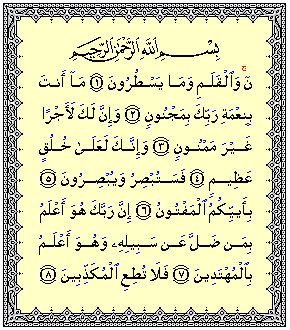 بِسْمِ اللَّهِ الرَّحْمَٰنِ الرَّحِيمِ
نٓ وَٱلْقَلَمِ وَمَا يَسْطُرُونَ ١ مَآ أَنتَ
بِنِعْمَةِ رَبِّكَ بِمَجْنُونٍ ٢ وَإِنَّ لَكَ لَأَجْرًا
غَيْرَ مَمْنُونٍ ٣ وَإِنَّكَ لَعَلَىٰ خُلُقٍ
عَظِيمٍ ٤ فَسَتُبْصِرُ وَيُبْصِرُونَ ٥
بِأَييِّكُمُ ٱلْمَفْتُونُ ٦ إِنَّ رَبَّكَ هُوَ أَعْلَمُ
بِمَن ضَلَّ عَن سَبِيلِهِۦ وَهُوَ أَعْلَمُ
بِٱلْمُهْتَدِينَ ٧ فَلَا تُطِعِ ٱلْمُكَذِّبِينَ ٨